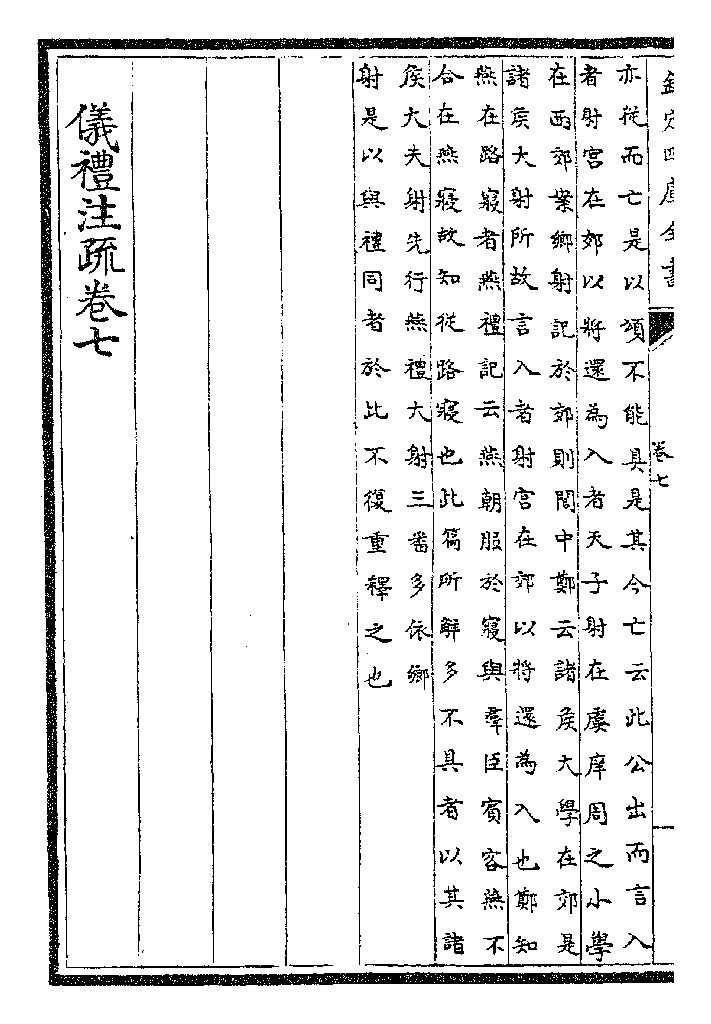 欽定四庫全書
卷七
亦從而亡是以頌不能具是其今亡云此公出而言入
者射宮在郊以將還為入者天子射在虞庠周之小學
在西郊案鄉射記於郊則閭中鄭云諸侯大學在郊是
諸侯大射所故言入者射宮在郊以將還為入也鄭知
燕在路寢者燕禮記云燕朝服於寢與羣臣賓客燕不
合在燕寢故知從路寢也此篇所解多不具者以其諸
侯大夫射先行燕禮大射三番多依鄉
射是以與禮同者於此不復重釋之也
儀禮注疏卷七